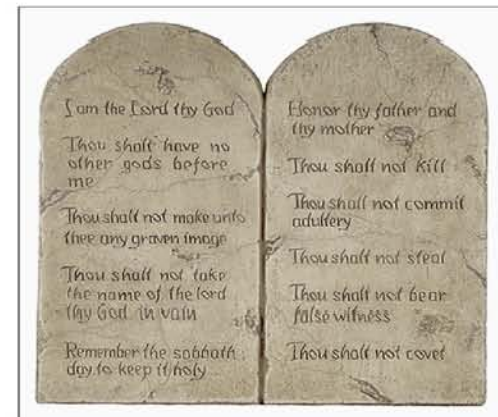 I am the Lord thy God
Thou shalt have no
other gods before
me
Thou shall not make unto
thee any graven image
Thou shall not take
the name of the lord
thy God in vain
Remember the sabbath
day, to keep it holy
Honor thy father and
thy mother
Thou shall not kill
Thou shall not commit
adultery
Thou shall not steal
Thou shall not bear
false witness
Thou shalt not covet